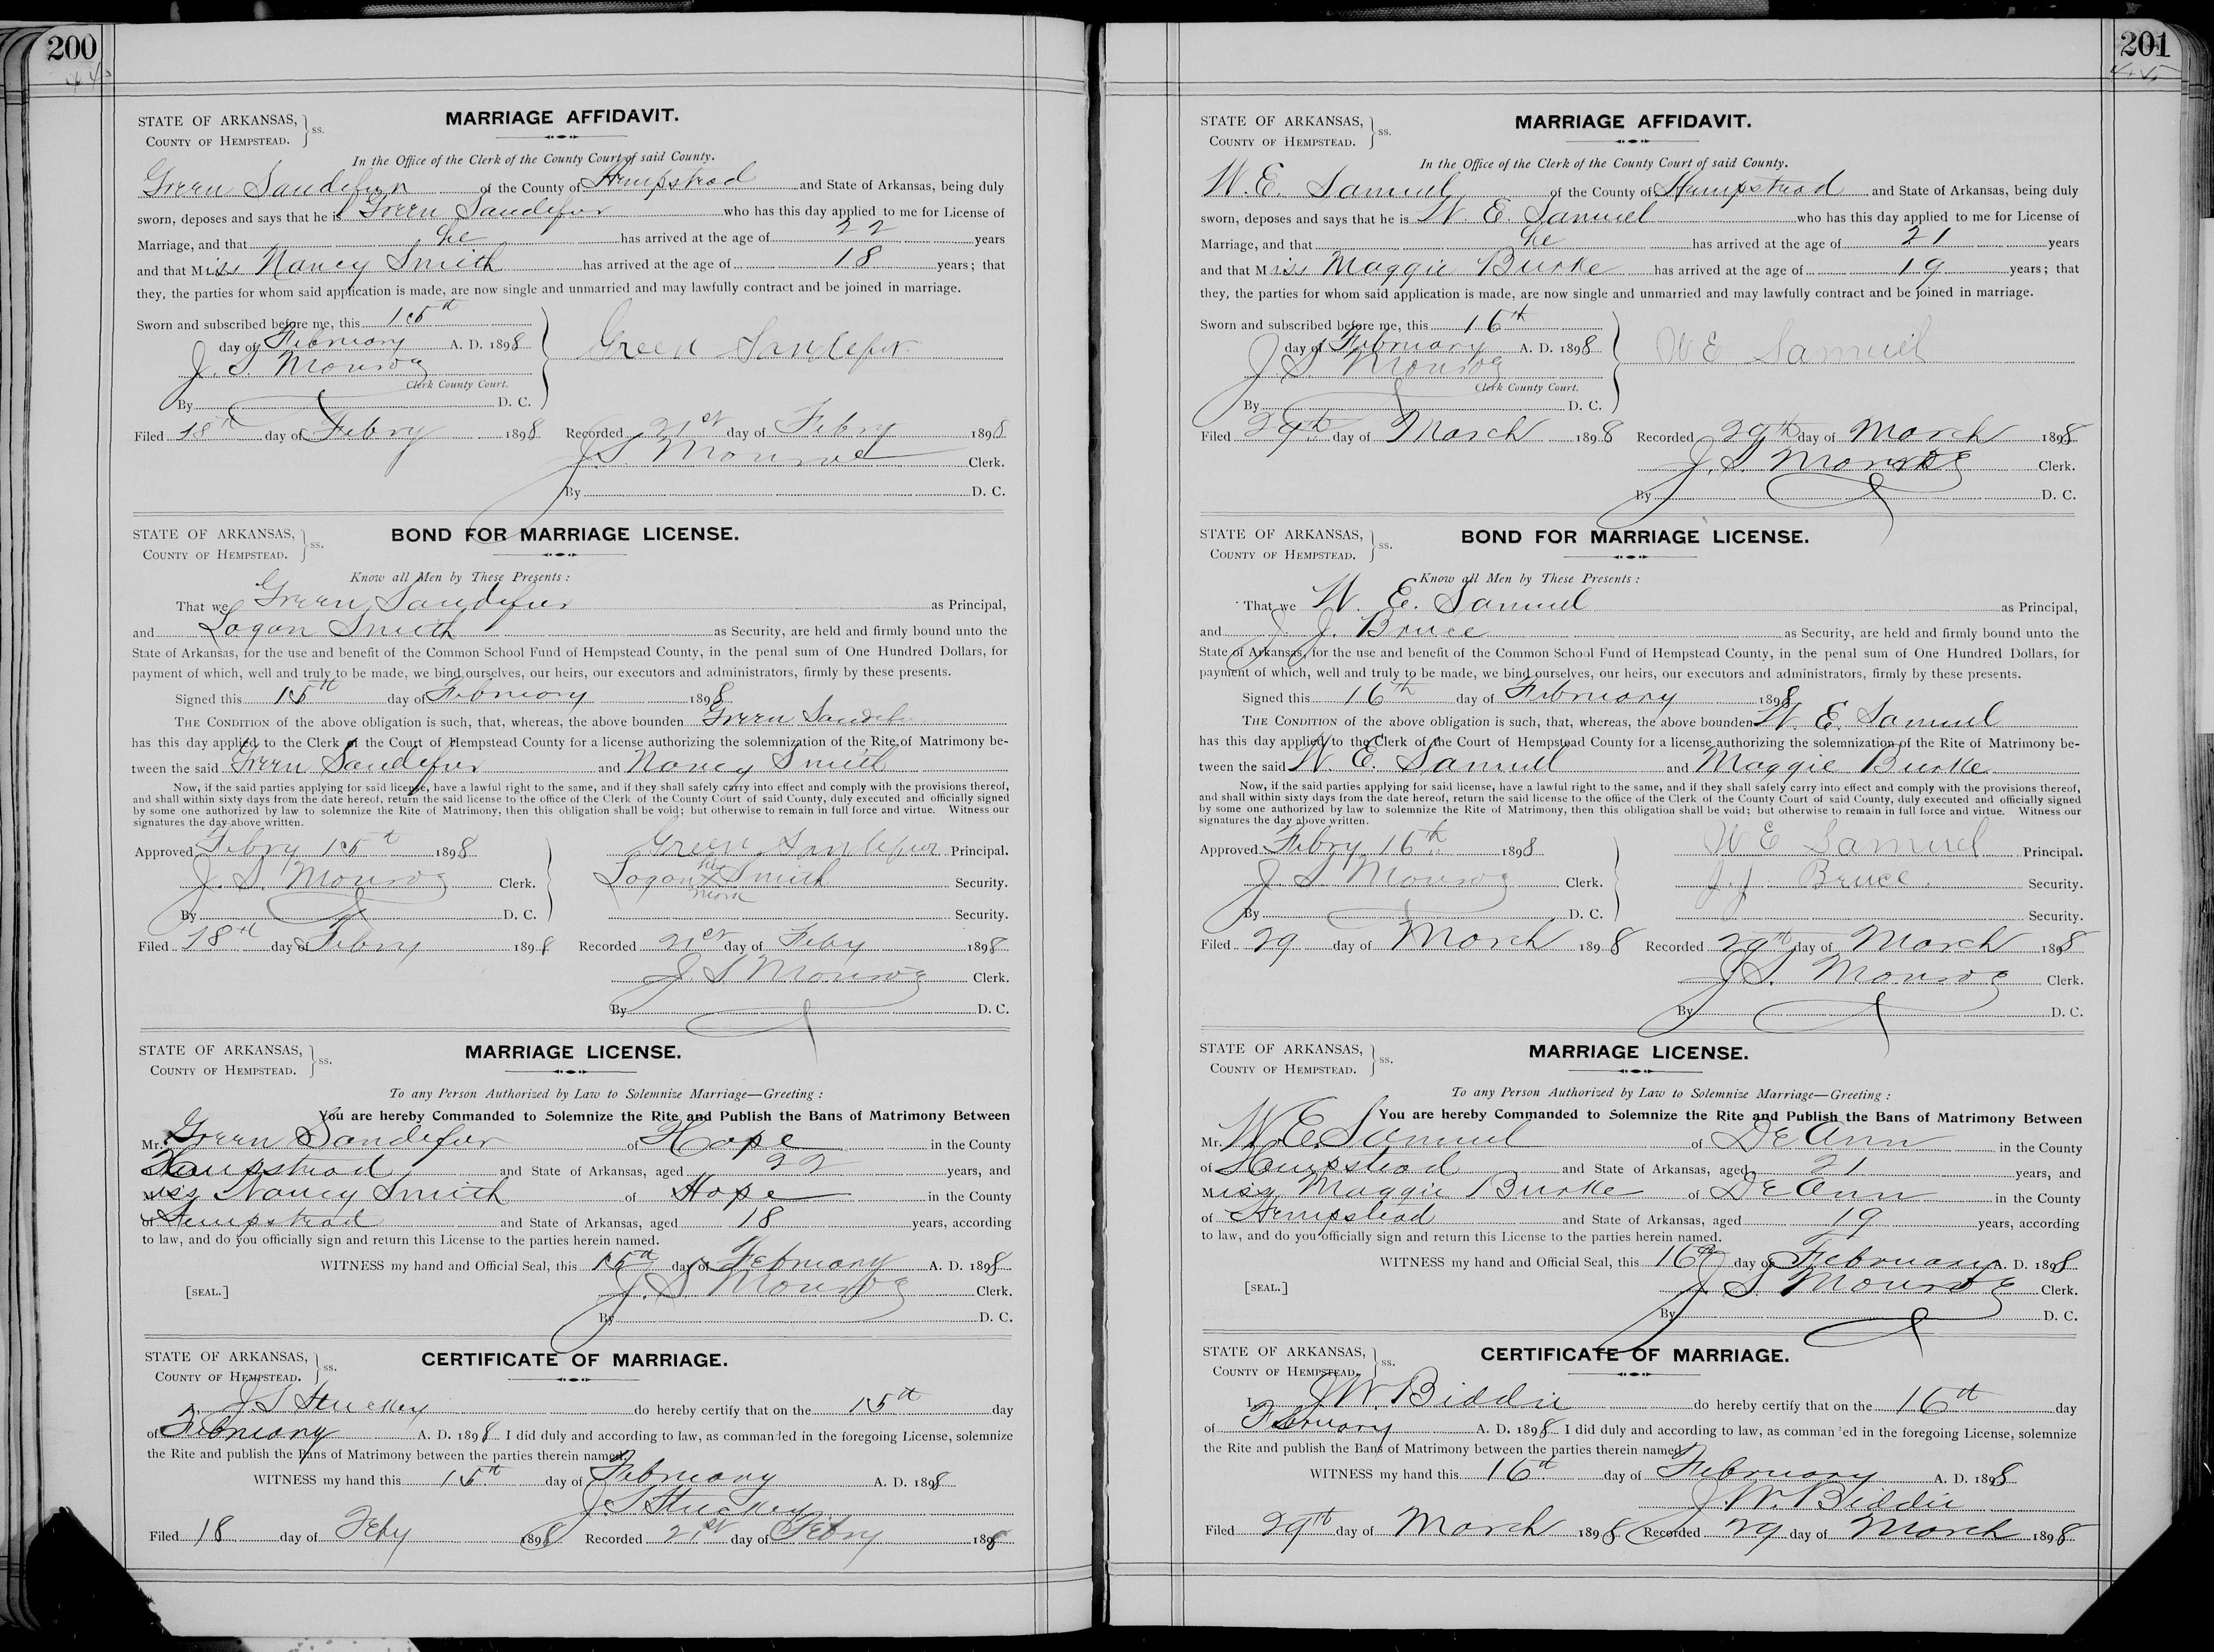 200
MARRIAGE AFFIDAVIT.
STATE OF ARKANSAS,
COUNTY OF HEMPSTEAD. } ss.
In the Office of the Clerk of the County Court of said County.
Green Sandefur of the County of Hempstead and State of Arkansas, being duly
sworn, deposes and says that he is Green Sandefur who has this day applied to me for License of
Marriage, and that he has arrived at the age of 22 years
and that Miss Nancy Smith has arrived at the age of 18 years; that
they, the parties for whom said application is made, are now single and unmarried and may lawfully contract and be joined in marriage.
Sworn and subscribed before me, this 15th
day of February A. D. 1898 Green Sandefur
J. S. Monroe
Clerk County Court.
By D. C.
Filed 18th day of Febry 1898 Recorded 21st day of Febry 1898
J. S. Monroe Clerk.
By D. C.
STATE OF ARKANSAS,
COUNTY OF HEMPSTEAD. } ss.
BOND FOR MARRIAGE LICENSE.
Know all Men by These Presents:
That we Green Sandefur as Principal,
and Logan Smith as Security, are held and firmly bound unto the
State of Arkansas, for the use and benefit of the Common School Fund of Hempstead County, in the penal sum of One Hundred Dollars, for
payment of which, well and truly to be made, we bind ourselves, our heirs, our executors and administrators, firmly by these presents.
Signed this 15th day of February 1898
THE CONDITION of the above obligation is such, that, whereas, the above bounden Green Sandefur
has this day applied to the Clerk of the Court of Hempstead County for a license authorizing the solemnization of the Rite of Matrimony be-
tween the said Green Sandefur and Nancy Smith
Now, if the said parties applying for said license, have a lawful right to the same, and if they shall safely carry into effect and comply with the provisions thereof,
and shall within sixty days from the date hereof, return the said license to the office of the Clerk of the County Court of said County, duly executed and officially signed
by some one authorized by law to solemnize the Rite of Matrimony, then this obligation shall be void; but otherwise to remain in full force and virtue. Witness our
signatures the day above written.
Approved Febry 15th 1898 Green Sandefur Principal.
J. S. Monroe Clerk. Logan his X mark Smith Security.
By D. C. Security.
Filed 18th day of Febry 1898 Recorded 21st day of Feby 1898
J. S. Monroe Clerk.
By D. C.
STATE OF ARKANSAS,
COUNTY OF HEMPSTEAD. } ss.
MARRIAGE LICENSE.
To any Person Authorized by Law to Solemnize Marriage—Greeting:
You are hereby Commanded to Solemnize the Rite and Publish the Bans of Matrimony Between
Mr. Green Sandefur of Hope in the County
Hempstead and State of Arkansas, aged 22 years, and
Miss Nancy Smith of Hope in the County
of Hempstead and State of Arkansas, aged 18 years, according
to law, and do you officially sign and return this License to the parties herein named.
WITNESS my hand and Official Seal, this 15th day of February A. D. 1898
[SEAL.] J. S. Monroe Clerk.
By D. C.
STATE OF ARKANSAS,
COUNTY OF HEMPSTEAD. } ss.
CERTIFICATE OF MARRIAGE.
I, J. S. Stuckey do hereby certify that on the 15th day
of February A. D. 1898 I did duly and according to law, as commanded in the foregoing License, solemnize
the Rite and publish the Bans of Matrimony between the parties therein named.
WITNESS my hand this 15th day of February A. D. 1898
J. S. Stuckey
Filed 18 day of Feby 1898 Recorded 21st day of Febry 1898
201
MARRIAGE AFFIDAVIT.
STATE OF ARKANSAS,
COUNTY OF HEMPSTEAD. } ss.
In the Office of the Clerk of the County Court of said County.
W. E. Samuel of the County of Hempstead and State of Arkansas, being duly
sworn, deposes and says that he is W. E. Samuel who has this day applied to me for License of
Marriage, and that he has arrived at the age of 21 years
and that Miss Maggie Burke has arrived at the age of 19 years; that
they, the parties for whom said application is made, are now single and unmarried and may lawfully contract and be joined in marriage.
Sworn and subscribed before me, this 16th
day of February A. D. 1898 W E Samuel
J. S. Monroe
Clerk County Court.
By D. C.
Filed 29th day of March 1898 Recorded 29th day of March 1898
J. S. Monroe Clerk.
By D. C.
STATE OF ARKANSAS,
COUNTY OF HEMPSTEAD. } ss.
BOND FOR MARRIAGE LICENSE.
Know all Men by These Presents:
That we W. E. Samuel as Principal,
and J. J. Bruce as Security, are held and firmly bound unto the
State of Arkansas, for the use and benefit of the Common School Fund of Hempstead County, in the penal sum of One Hundred Dollars, for
payment of which, well and truly to be made, we bind ourselves, our heirs, our executors and administrators, firmly by these presents.
Signed this 16th day of February 1898
THE CONDITION of the above obligation is such, that, whereas, the above bounden W. E. Samuel
has this day applied to the Clerk of the Court of Hempstead County for a license authorizing the solemnization of the Rite of Matrimony be-
tween the said W. E. Samuel and Maggie Burke
Now, if the said parties applying for said license, have a lawful right to the same, and if they shall safely carry into effect and comply with the provisions thereof,
and shall within sixty days from the date hereof, return the said license to the office of the Clerk of the County Court of said County, duly executed and officially signed
by some one authorized by law to solemnize the Rite of Matrimony, then this obligation shall be void; but otherwise to remain in full force and virtue. Witness our
signatures the day above written.
Approved Febry 16th 1898 W E Samuel Principal.
J. S. Monroe Clerk. J. J. Bruce. Security.
By D. C. Security.
Filed 29 day of March 1898 Recorded 29th day of March 1898
J. S. Monroe Clerk.
By D. C.
STATE OF ARKANSAS,
COUNTY OF HEMPSTEAD. } ss.
MARRIAGE LICENSE.
To any Person Authorized by Law to Solemnize Marriage—Greeting:
You are hereby Commanded to Solemnize the Rite and Publish the Bans of Matrimony Between
Mr. W. E. Samuel of DeAnn in the County
of Hempstead and State of Arkansas, aged 21 years, and
Miss Maggie Burke of DeAnn in the County
of Hempstead and State of Arkansas, aged 19 years, according
to law, and do you officially sign and return this License to the parties herein named.
WITNESS my hand and Official Seal, this 16th day of February A. D. 1898
[SEAL.] J. S. Monroe Clerk.
By D. C.
STATE OF ARKANSAS,
COUNTY OF HEMPSTEAD. } ss.
CERTIFICATE OF MARRIAGE.
I J. W. Biddie do hereby certify that on the 16th day
of February A. D. 1898 I did duly and according to law, as commanded in the foregoing License, solemnize
the Rite and publish the Bans of Matrimony between the parties therein named.
WITNESS my hand this 16th day of February A. D. 1898
J. W. Biddie
Filed 29th day of March 1898 Recorded 29 day of March 1898